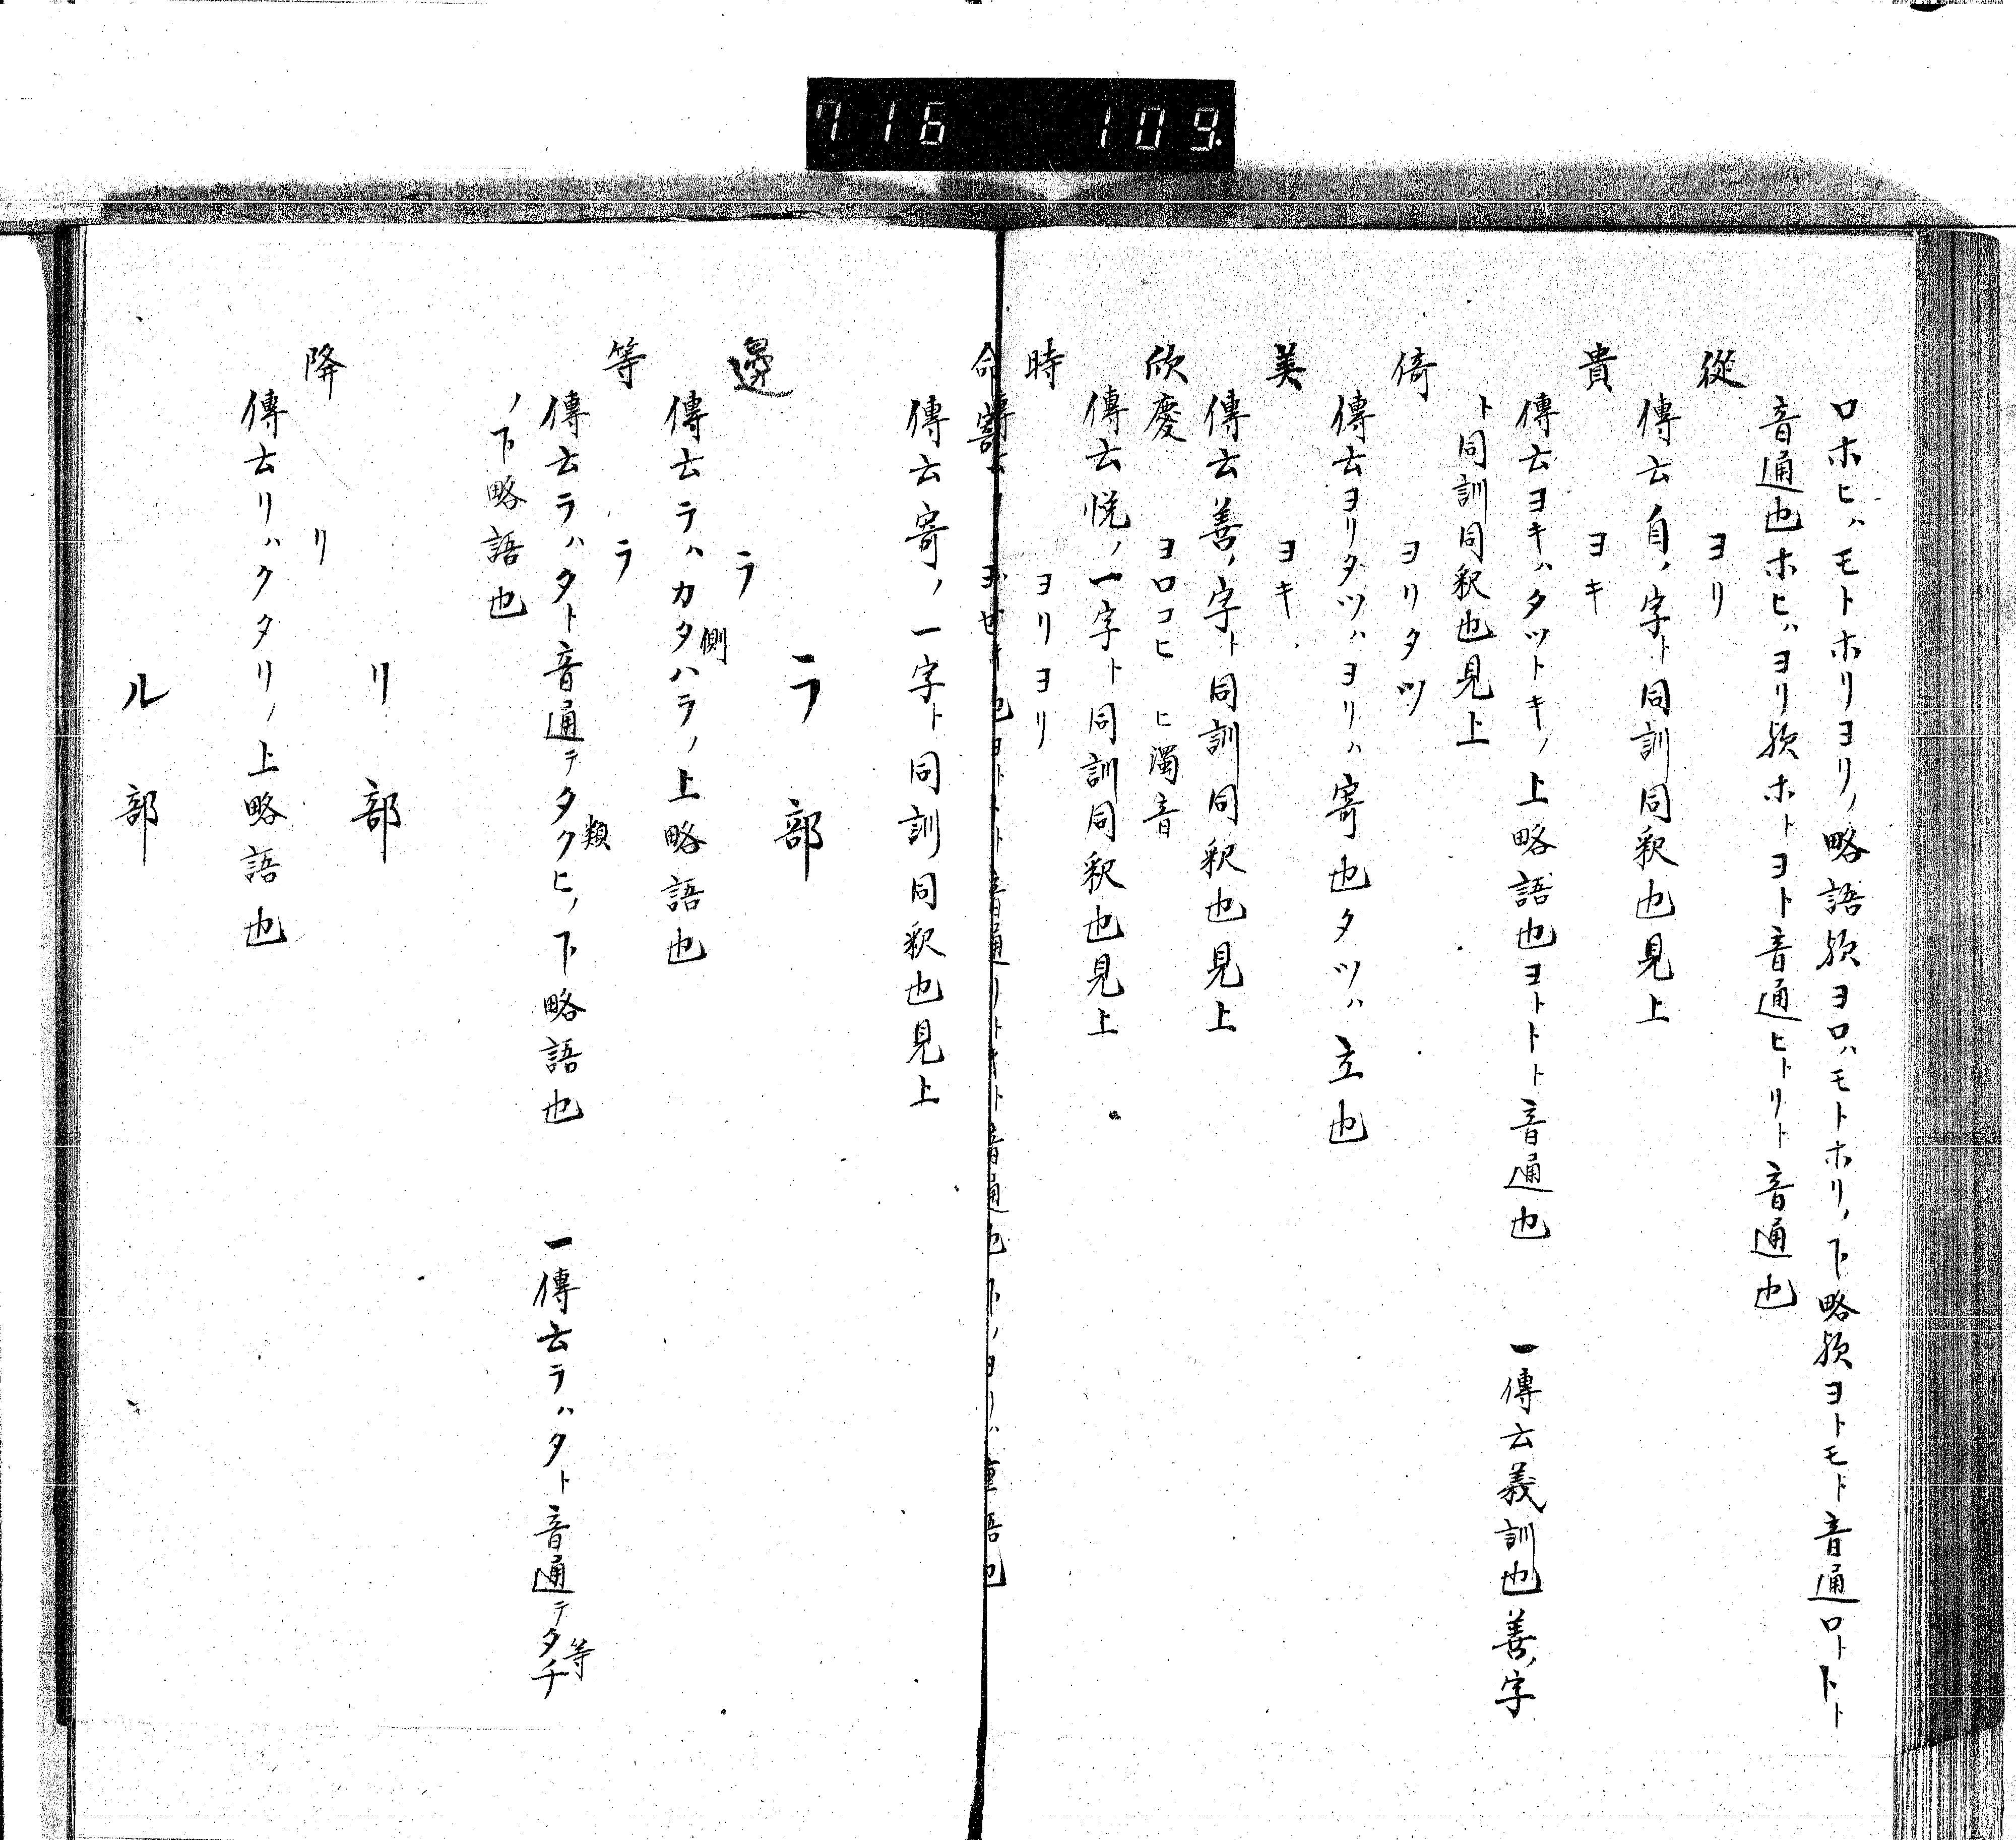 716 109.
ロホヒハモトホリヨリノ略語歟ヨロハモトホリノ下略歟ヨトモト音通ロトトト
音通也ホヒハヨリ歟ホトヨト音通ヒトリト音通也
從 ヨリ
傳云自ノ字ト同訓同釈也見上
貴 ヨキ
傳云ヨキハタツトキノ上略語也ヨトトト音通也 一傳云義訓也善ノ字
ト同訓同釈也見上
倚 ヨリタツ
傳云ヨリタツハヨリハ寄也タツハ立也
美 ヨキ
傳云善ノ字ト同訓同釈也見上
欣慶 ヨロコヒ ヒ濁音
傳云悦ノ一字ト同訓同釈也見上
時 ヨリヨリ
音通リトキト音通也下ノヨリハ重語也
命寄 ヨせ
傳云寄ノ一字ト同訓同釈也見上
ラ部
邊 ラ
傳云ラハカタハラノ上略語也
側
等 ラ
傳云ラハタト音通テタクヒノ下略語也 一傳云ラハタト音通テタチ
類 等
ノ下略語也
リ部
降 リ
傳云リハクタリノ上略語也
ル部